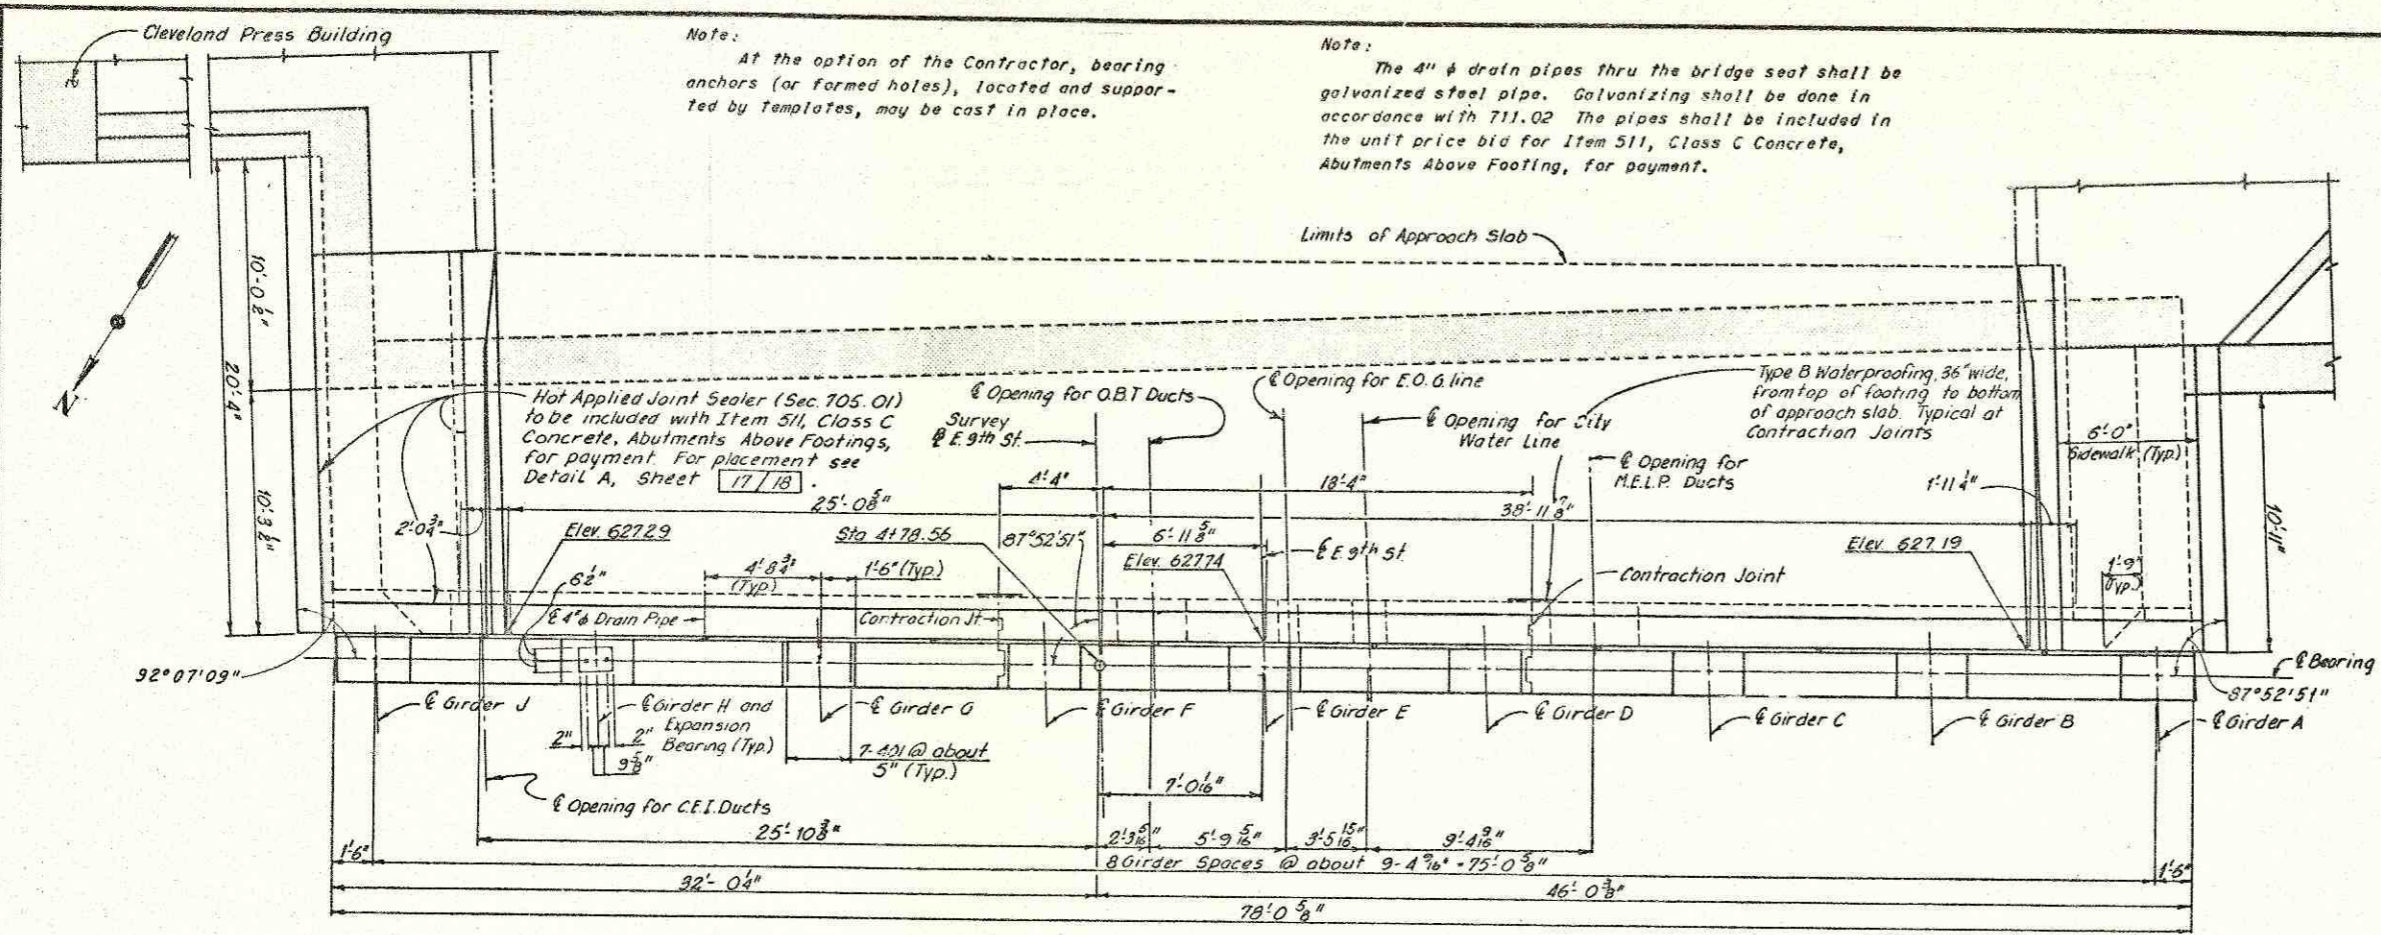 Cleveland Press Building
Note:
At the option of the Contractor, bearing
anchors (or formed holes), located and suppor-
ted by templates, may be cast in place.
Note:
The 4" ϕ drain pipes thru the bridge seat shall be
galvanized steel pipe. Galvanizing shall be done in
accordance with 711.02 The pipes shall be included in
the unit price bid for Item 511, Class C Concrete,
Abutments Above Footing, for payment.
Limits of Approach Slab
10'-0 1/2"
20'-4"
10'-3 1/2"
N
Hot Applied Joint Sealer (Sec. 705.01)
to be included with Item 511, Class C
Concrete, Abutments Above Footings,
for payment. For placement see
Detail A, Sheet 17/18.
Survey
℄ E. 9th St.
℄ Opening for O.B.T Ducts
℄ Opening for E.O.G. line
℄ Opening for City
Water Line
℄ Opening for
M.E.L.P. Ducts
Type B Waterproofing, 36" wide,
from top of footing to bottom
of approach slab. Typical at
Contraction Joints
6'-0"
Sidewalk (Typ.)
4'-4"
18'-4"
1'-11 1/4"
25'-0 5/8"
38'-11 7/8"
2'-0 3/4"
Elev. 627.29
Sta 4+78.56
87°52'51"
6'-11 5/8"
Elev. 627.74
℄ E. 9th St.
Elev. 627.19
10'-11"
6 1/2"
4'-8 3/4"
(Typ.)
1'-6" (Typ.)
Contraction Joint
1'-9"
(Typ.)
℄ 4" ϕ Drain Pipe
Contraction Jt.
92°07'09"
℄ Bearing
87°52'51"
℄ Girder J
℄ Girder H and
Expansion
Bearing (Typ.)
℄ Girder G
℄ Girder F
℄ Girder E
℄ Girder D
℄ Girder C
℄ Girder B
℄ Girder A
2"
2"
9 3/8"
7-401 @ about
5" (Typ.)
7'-0 1/16"
℄ Opening for C.E.I. Ducts
25'-10 3/8"
2'-3 5/16"
5'-9 5/16"
3'-5 15/16"
9'-4 9/16"
1'-6"
8 Girder Spaces @ about 9-4 9/16" = 75'-0 5/8"
1'-6"
32'-0 1/4"
46'-0 3/8"
78'-0 5/8"